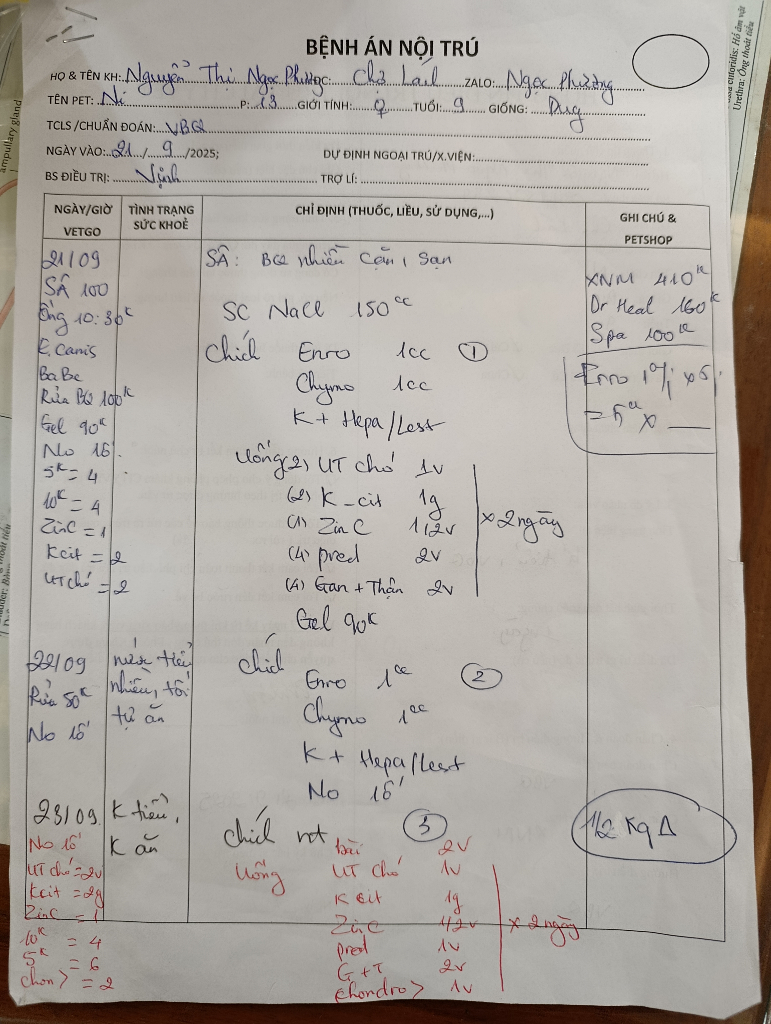 BỆNH ÁN NỘI TRÚ
HỌ & TÊN KH: Nguyễn Thị Ngọc Phượng Chợ Lách ZALO: Ngọc Phượng
TÊN PET: Ni P: 13 GIỚI TÍNH: ♀ TUỔI: 9 GIỐNG: Pug
TCLS /CHUẨN ĐOÁN: VBQ
NGÀY VÀO: 21 / 9 /2025; DỰ ĐỊNH NGOẠI TRÚ/X.VIỆN:
BS ĐIỀU TRỊ: Vịnh TRỢ LÍ:
NGÀY/GIỜ VETGO
TÌNH TRẠNG SỨC KHOẺ
CHỈ ĐỊNH (THUỐC, LIỀU, SỬ DỤNG,...)
GHI CHÚ & PETSHOP
21/09
SÂ 100
Ống 10: 30K
E.Canis
BaBe
Rửa BQ 100K
Gel 90K
No 16
5K = 4
10K = 4
ZinC = 1
Kcit = 2
UT chó = 2
SÂ: BQ nhiều Cặn, Sạn
SC NaCl 150cc
Chích Enro 1cc ①
Chymo 1cc
K + Hepa/Lest
Uống (2) UT chó 1v
(2) K-cit 1g
(1) ZinC 1/2v
(4) pred 2v
(4) Gan + Thận 2v
x 2 ngày
Gel 90K
XNM 410K
Dr Heal 160K
Spa 100K
Enro 1 x 5
= 5 x
22/09
Rửa 50K
No 16
nước tiểu nhiều, tối tự ăn
chích Enro 1cc ②
Chymo 1cc
K + Hepa/Lest
No 16
23/09
K tiểu,
K ăn
chích ③
1/2 Kg Δ
No 16
UT chó = 2v
Kcit = 2g
ZinC = 1
10K = 4
5K = 6
chon> = 2
Uống
2v
UT chó 1v
K cit 1g
ZinC 1/2v
pred 1v
G + T 2v
chondro> 1v
x 2 ngày
ampullary gland
Urethra: Ống thoát tiểu